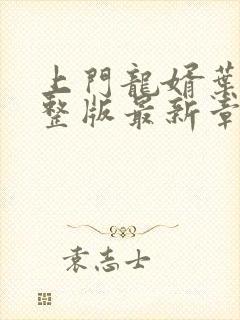 上門龍婿葉
整版最新章
袁志士